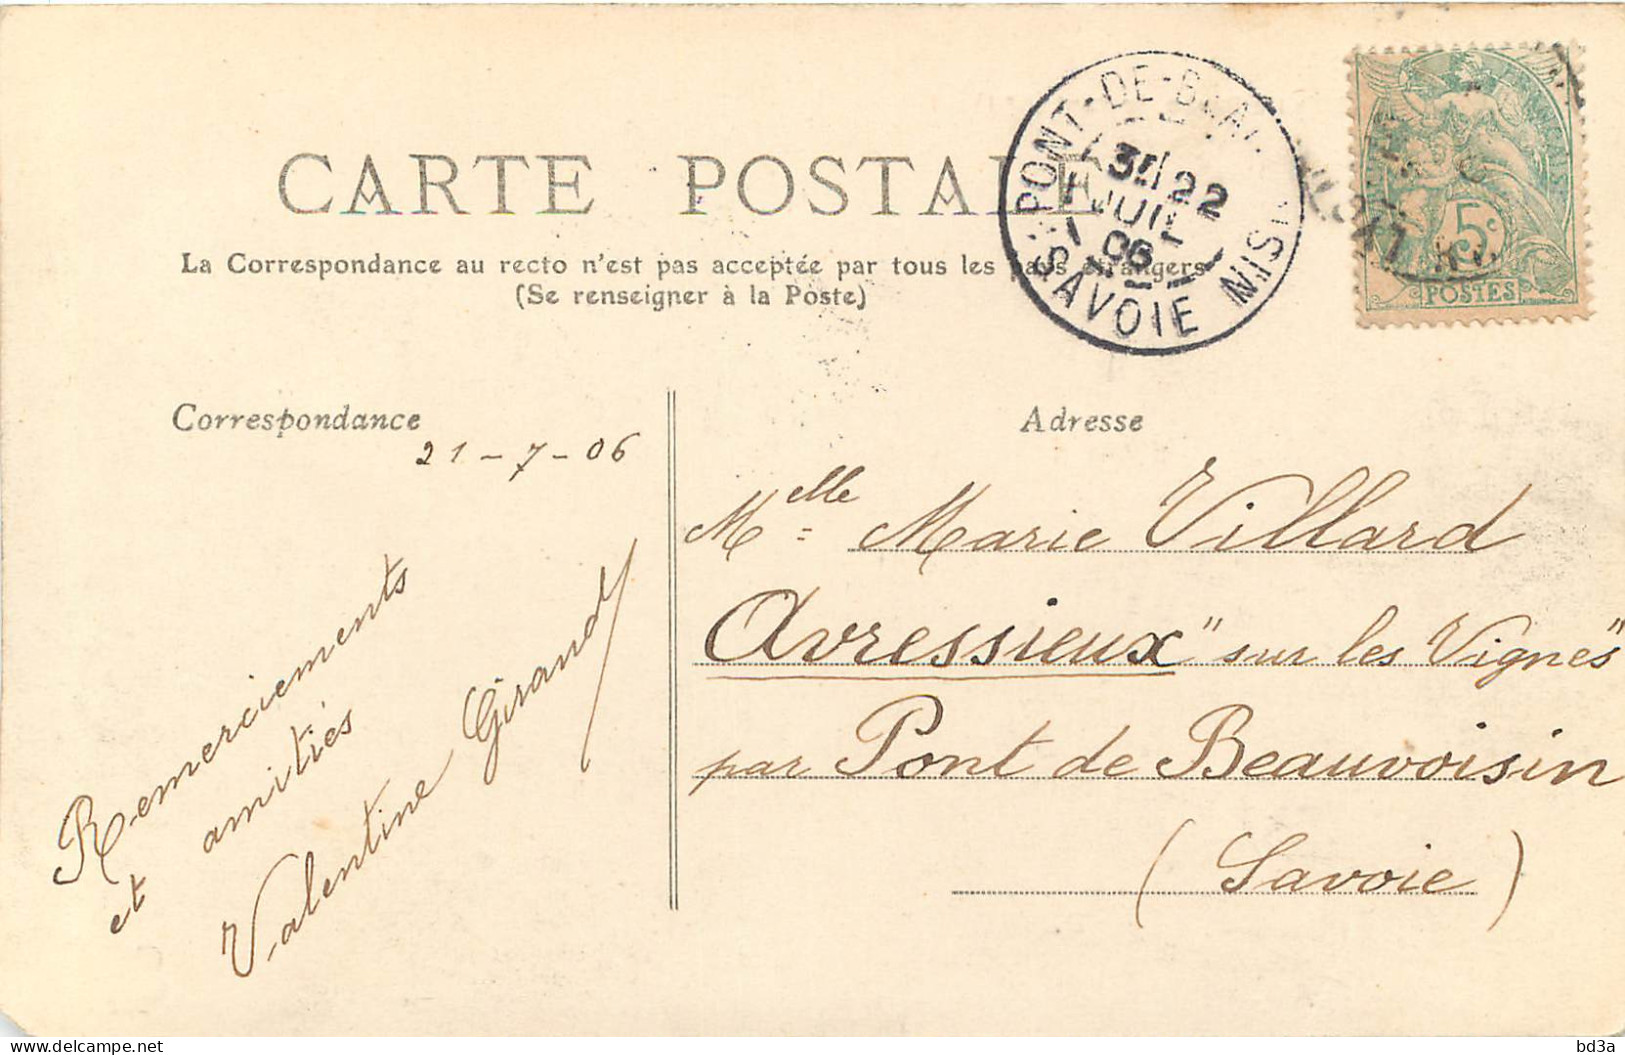 CARTE POSTALE
La Correspondance au recto n'est pas acceptée par tous les pays étrangers
(Se renseigner à la Poste)
PONT-DE-BEAUVOISIN
22
JUIL
06
SAVOIE
5c
POSTES
Correspondance
21-7-06
Remerciements
et amitiés
Valentine Girand
Adresse
Melle Marie Villard
Avressieux "sur les Vignes"
par Pont de Beauvoisin
(Savoie)
bd3a